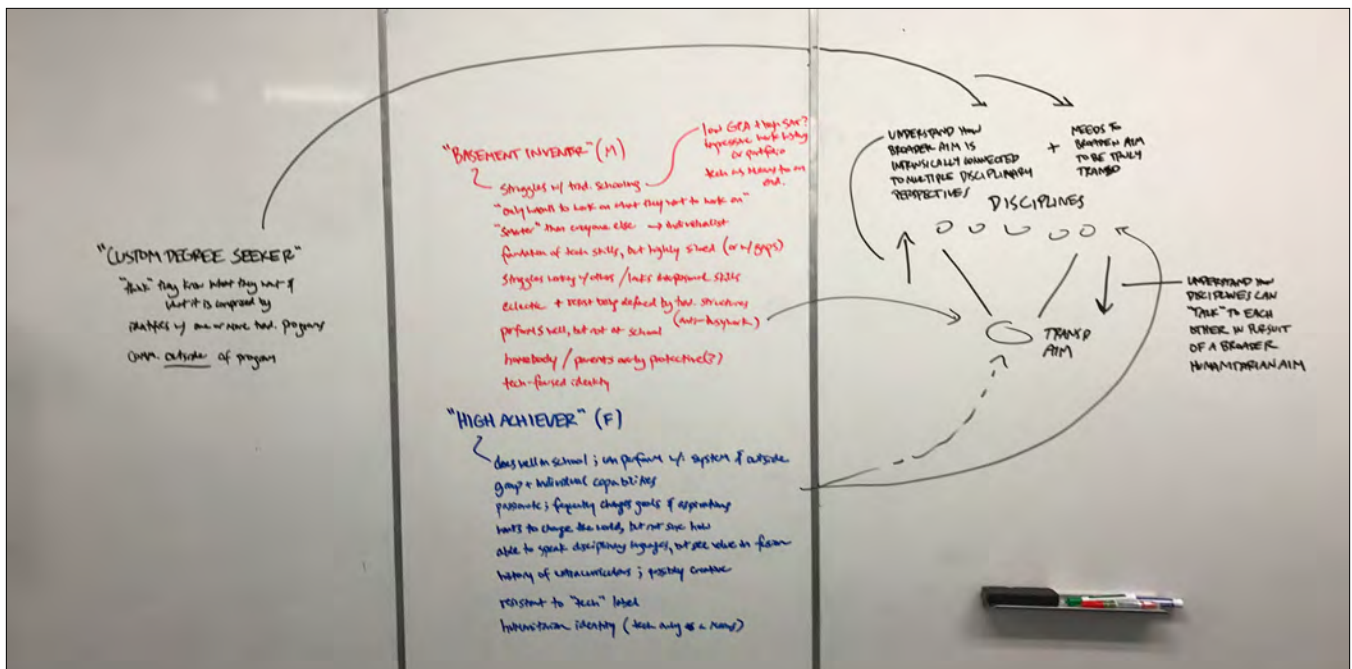 "CUSTOM DEGREE SEEKER"
"think" they know what they want &
what it is comprised by
identifies w/ one or more trad. programs
comm. outside of program
"BASEMENT INVENTOR" (M)
low GPA + high SAT?
impressive work history
or portfolio
tech as means to an
end.
struggles w/ trad. schooling
"only wants to work on what they want to work on"
"smarter" than everyone else → individualist
foundation of tech skills, but highly siloed (or w/ gaps)
struggles working w/ others / lacks interpersonal skills
eclectic + resist being defined by trad. structures
performs well, but not at school
homebody / parents overly protective(?)
tech-focused identity
"HIGH ACHIEVER" (F)
does well in school; can perform w/i system & outside
group + individual capabilities
passionate; frequently changes goals & aspirations
wants to change the world, but not sure how
able to speak disciplinary languages, but see value in fusion
history of extracurriculars; possibly creative
resistant to "tech" label
humanitarian identity (tech only as a means)
UNDERSTAND HOW
BROADER AIM IS
INTRINSICALLY CONNECTED
TO MULTIPLE DISCIPLINARY
PERSPECTIVES
+
NEEDS TO
BROADEN AIM
TO BE TRULY
TRANSD
DISCIPLINES
TRANSD
AIM
UNDERSTAND HOW
DISCIPLINES CAN
"TALK" TO EACH
OTHER IN PURSUIT
OF A BROADER
HUMANITARIAN AIM